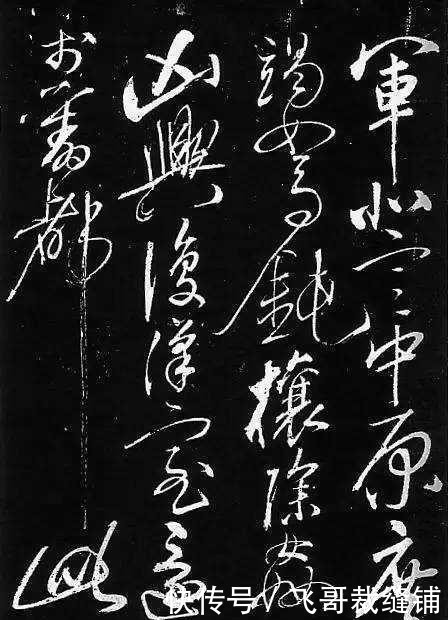 軍北定中原庶
竭駑鈍攘除姦
凶興復漢室還
於舊都此
快传号/飞哥裁缝铺